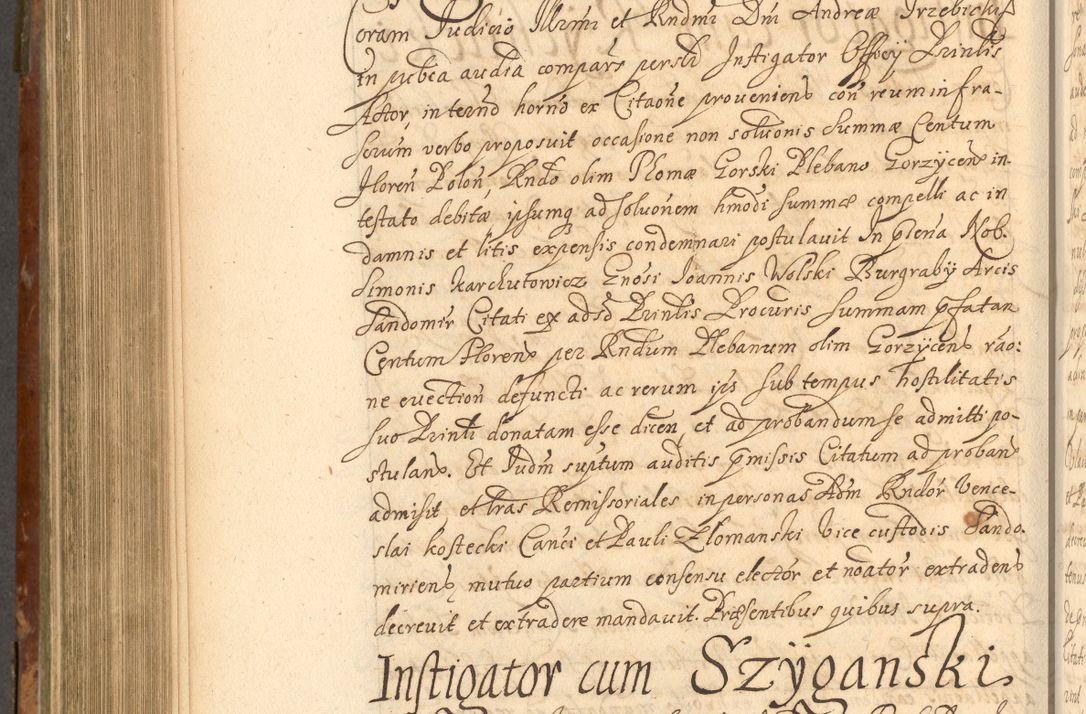 Coram Judicio Illrmi et Rndmi Dni Andreæ Trzebicki
in publca audia compars persl Instigator Offoy Prntis
Actor, in termo horno ex Citaone proveniens con reum infra-
serum verbo proposuit occasione non solvonis summæ Centum
Floren Polon Rndo olim Thomæ Gorski Plebano Gorzycens in-
testato debitæ ipsumq ad solvonem hmodi summæ compelli ac in
damnis et litis expensis condemnari postulavit In prsena Nob.
Simonis Karchutowicz Gnosi Joannis Wolski Burgraby Arcis
Sandomir Citati ex adso Prntis Procuris summam pfatan
Centum Florens per Rndum Plebanum olim Gorzycens rao:
ne evection defuncti ac rerum ips sub tempus hostilitatis
suo Prinli donatam esse dicen et ad probandum se admitti po-
stulans. Et Judm suptum auditis pmissis Citatum ad proban
admisit et lras Remissoriales in personas Adm Rndor Vence-
slai Kostecki Canci et Pauli Zlomanski Vice custodis Sando-
miriens, mutuo partium consensu elector et noator extradens
decrevit et extradere mandavit. Præsentibus quibus supra.
Instigator cum Szÿganski